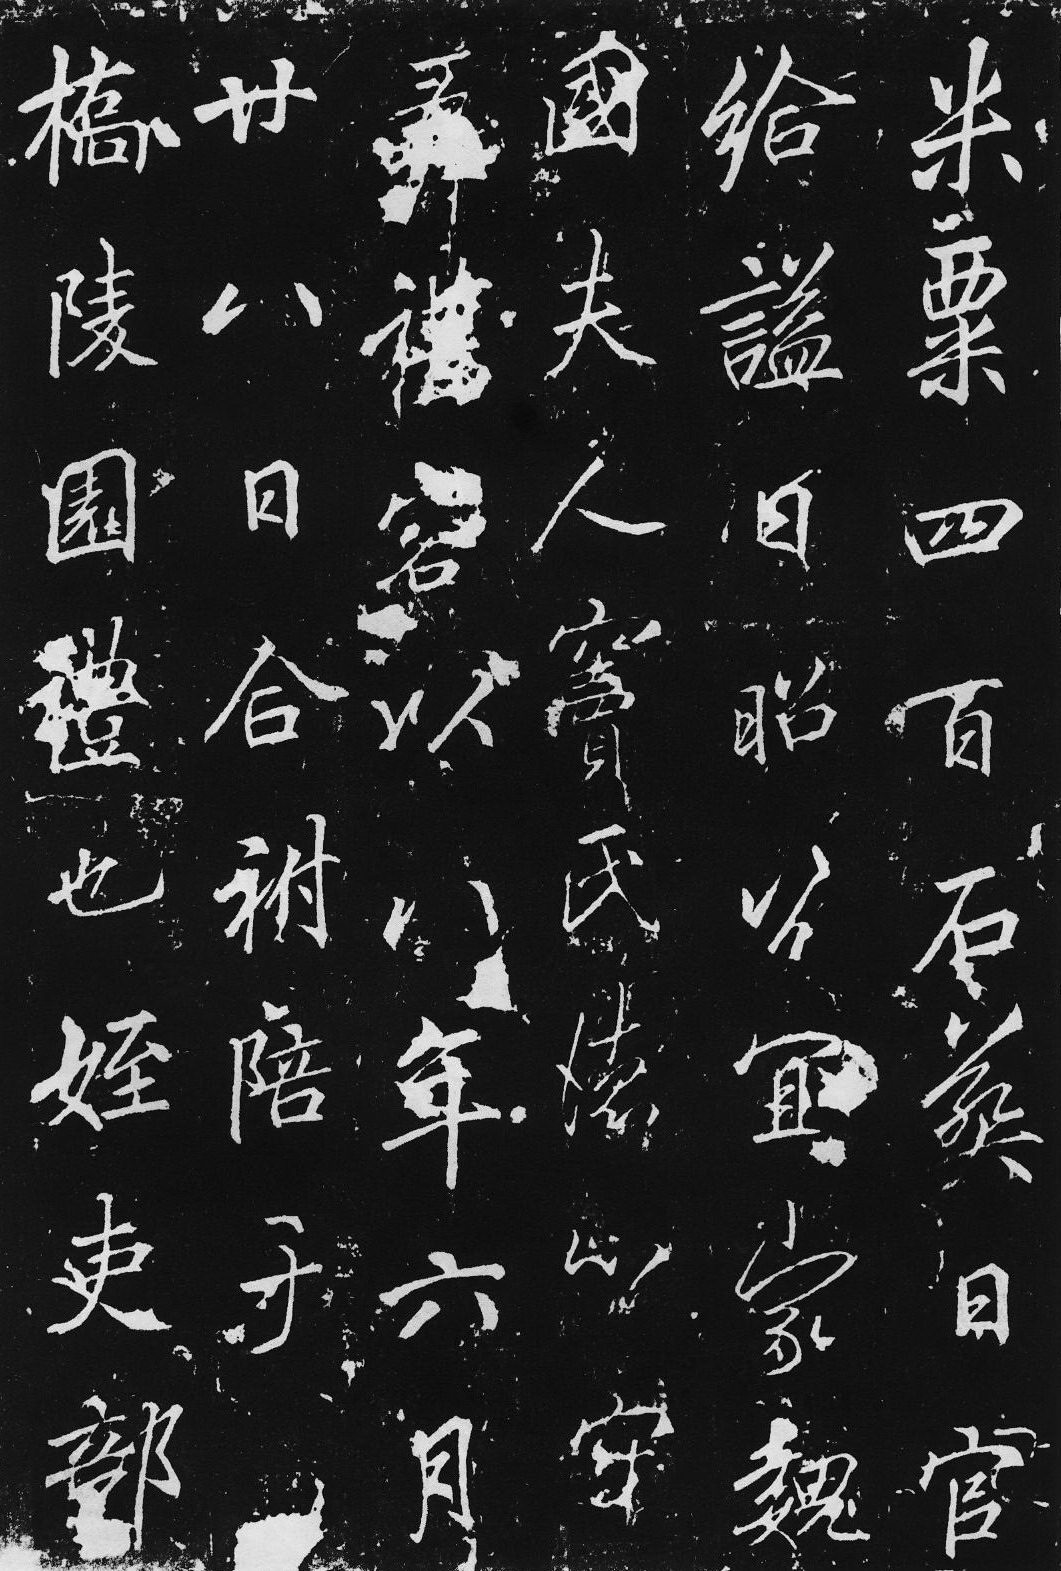 米粟四百石葬日官
給謚曰昭公宜家魏
國夫人竇氏心守
禮容以八年六月
廿八日合祔陪于
橋陵園禮也姪吏部